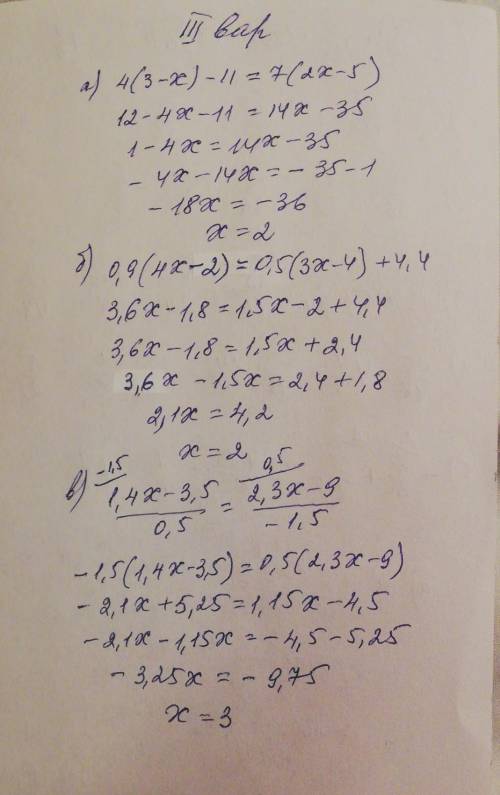 III вар
а) 4(3-x)-11=7(2x-5)
12-4x-11=14x-35
1-4x=14x-35
-4x-14x=-35-1
-18x=-36
x=2
б) 0,9(4x-2)=0,5(3x-4)+4,4
3,6x-1,8=1,5x-2+4,4
3,6x-1,8=1,5x+2,4
3,6x-1,5x=2,4+1,8
2,1x=4,2
x=2
-1,5 0,5
в) 1,4x-3,5 = 2,3x-9
0,5 -1,5
-1,5(1,4x-3,5)=0,5(2,3x-9)
-2,1x+5,25=1,15x-4,5
-2,1x-1,15x=-4,5-5,25
-3,25x=-9,75
x=3